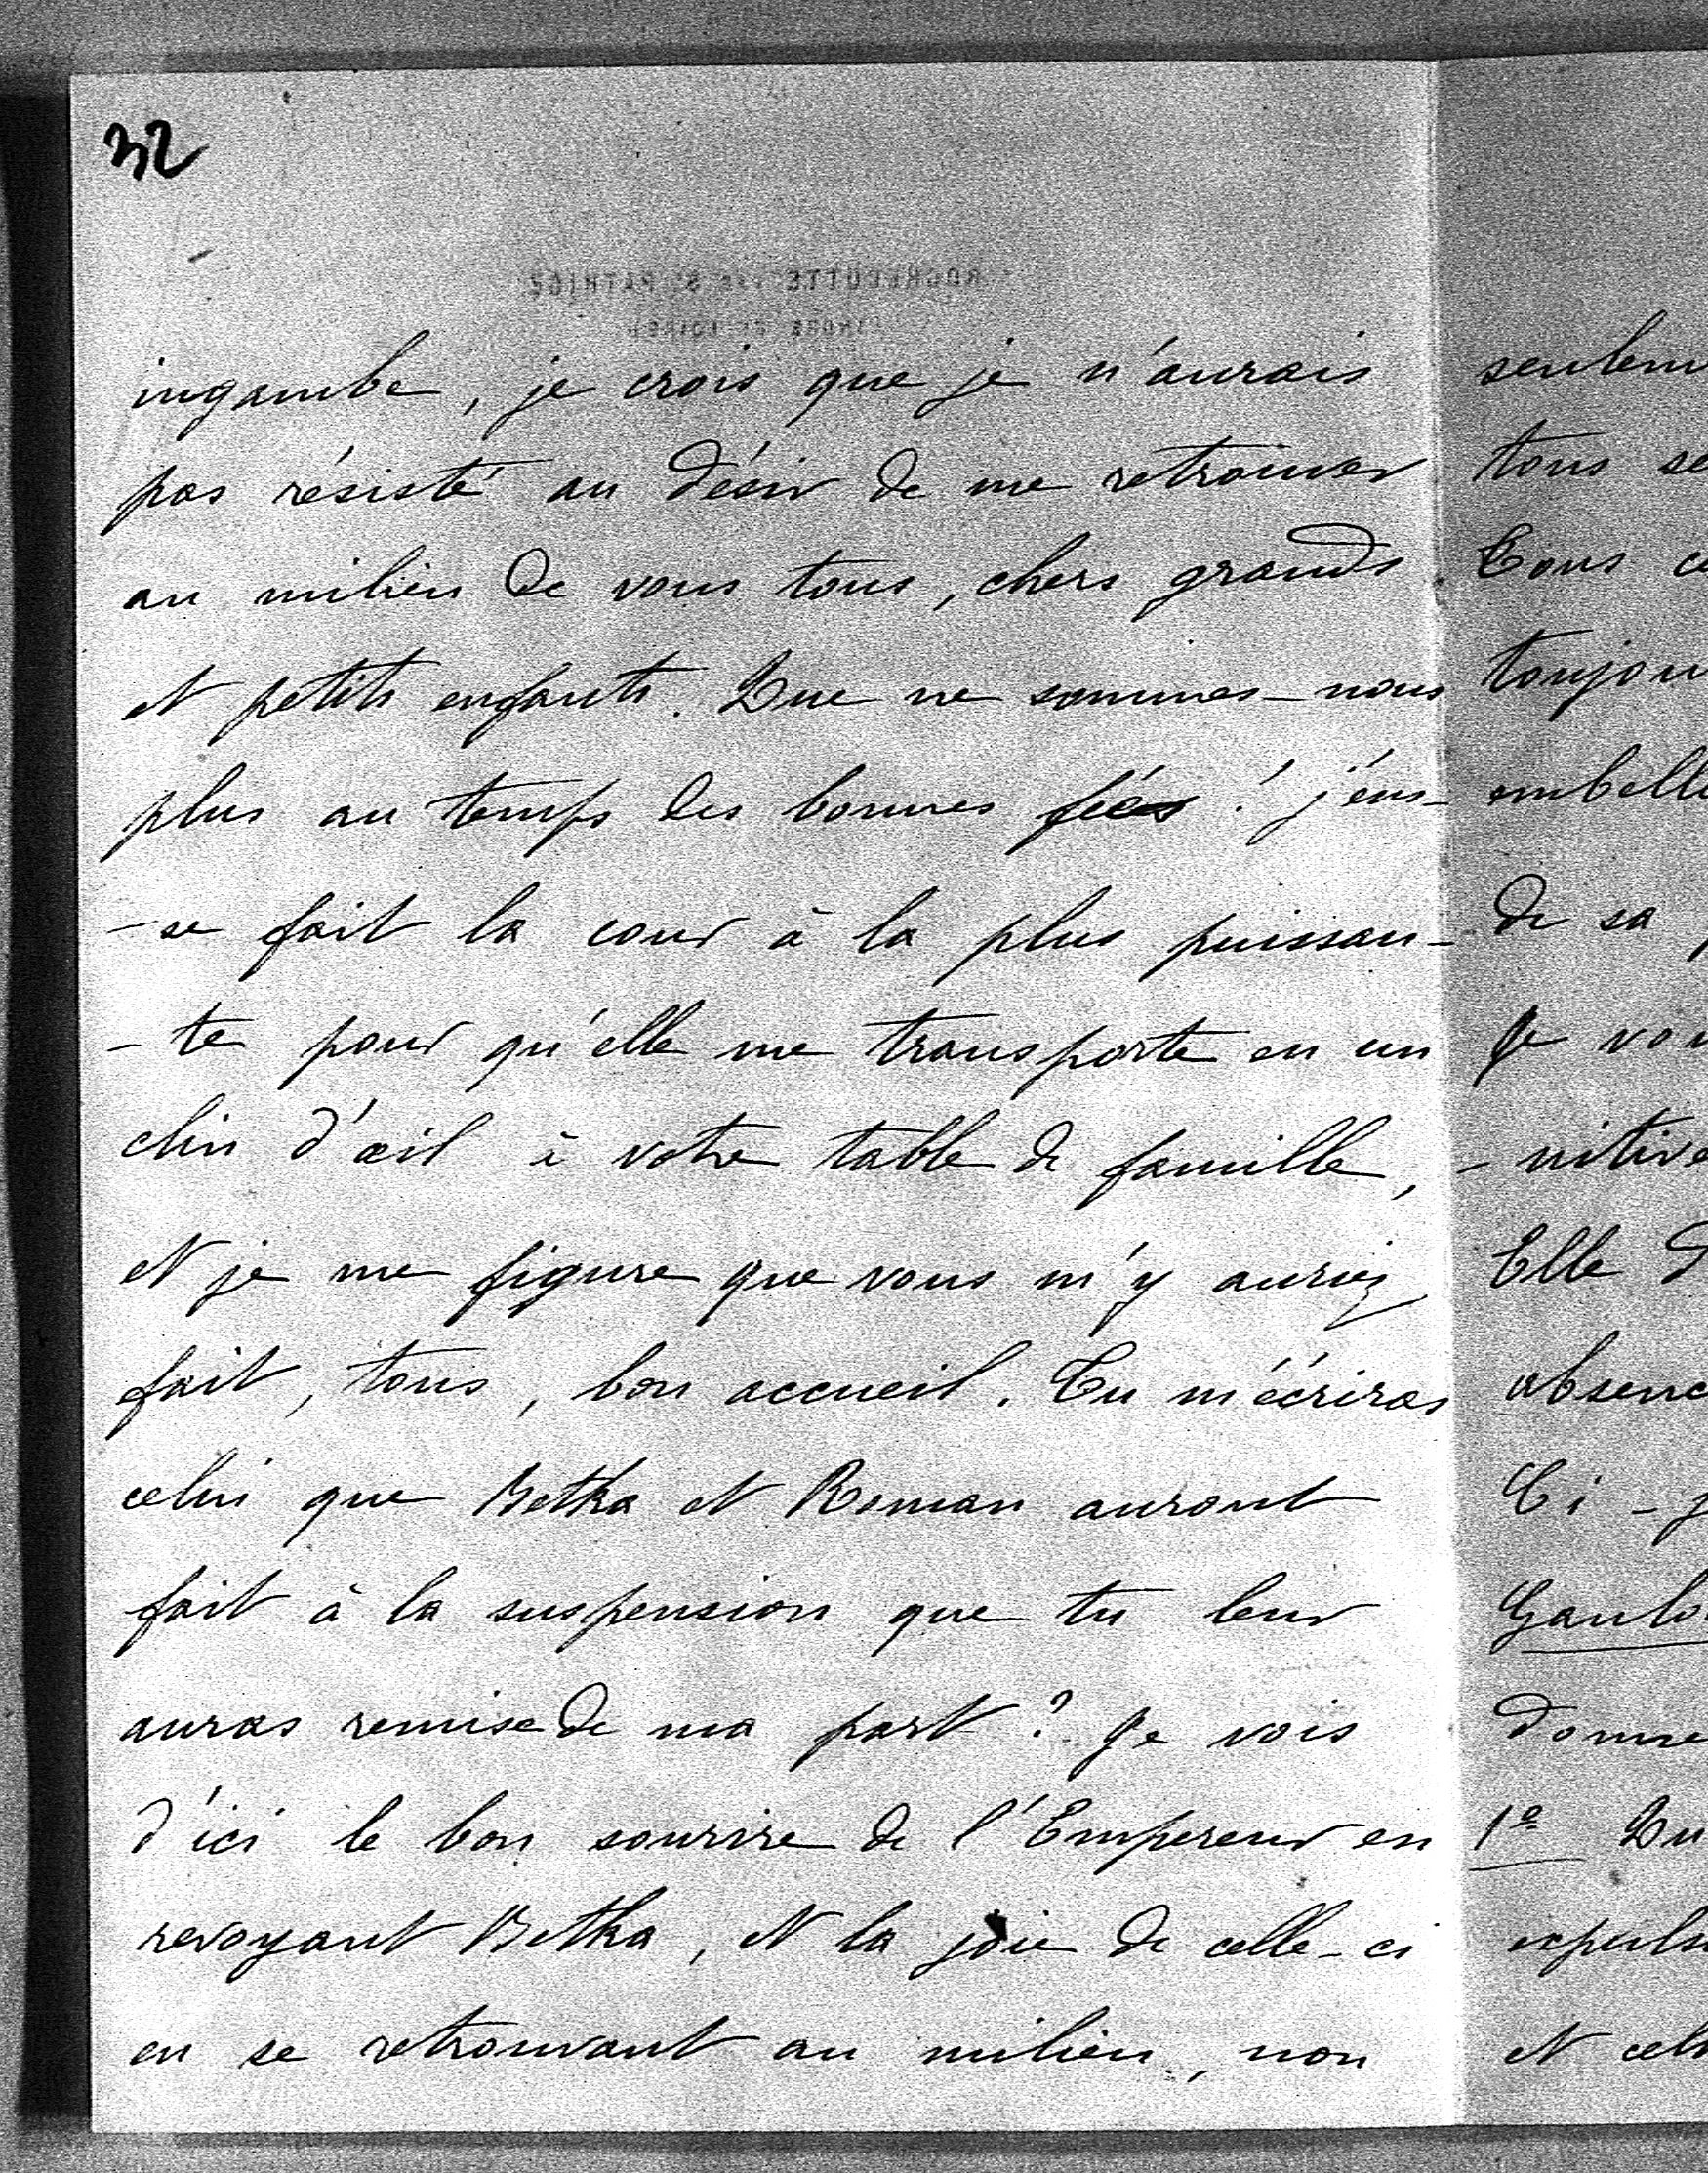 32
ingambe, je crois que je n'aurais
pas résisté au désir de me retrouver
au milieu de vous tous, chers grands
et petits enfants. Que ne sommes-nous
plus au temps des bonnes fées ! j'eus-
-se fait la cour à la plus puissan-
-te pour qu'elle me transporte en un
clin d'œil à votre table de famille,
et je me figure que vous m'y auriez
fait, tous, bon accueil. Tu m'écriras
celui que Betka et Roman auront
fait à la suspension que tu leur
auras remise de ma part ? Je vois
d'ici le bon sourire de l'Empereur en
revoyant Betka, et la joie de celle-ci
en se retrouvant au milieu, non
seulem
tous se
Tous ce
toujou
embelle
de sa
Je vou
-nitive
Elle d
absenc
Ci-j
Gaulo
donne
1º Qu
expuls
et cel